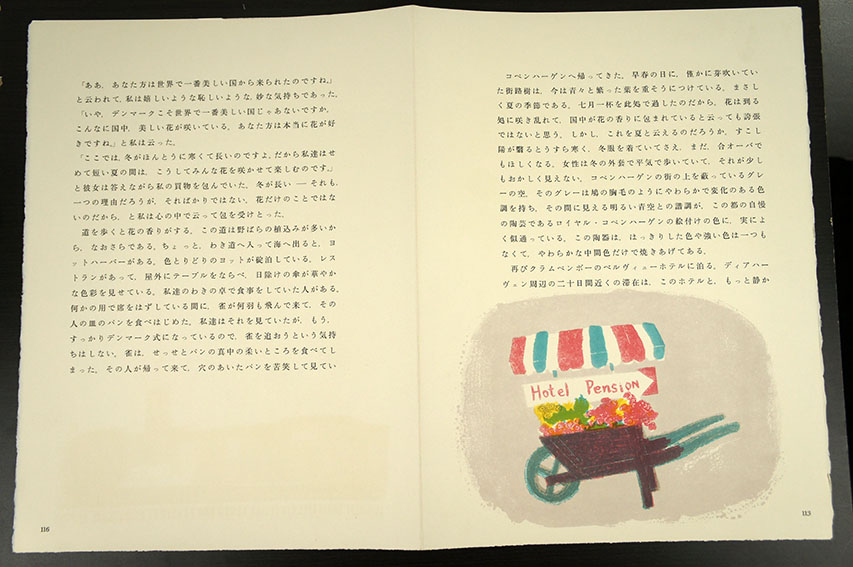 「ああ，あなた方は世界で一番美しい国から来られたのですね。」
と云われて，私は嬉しいような恥しいような，妙な気持ちであった。
「いや，デンマークこそ世界で一番美しい国じゃあないですか。
こんなに国中，美しい花が咲いている。あなた方は本当に花が好
きですね。」と私は云った。
「ここでは，冬がほんとうに寒くて長いのですよ。だから私達はせ
めて短い夏の間は，こうしてみんな花を咲かせて楽しむのです。」
と彼女は答えながら私の買物を包んでいた。冬が長い ── それも，
一つの理由だろうが，そればかりではない。花だけのことではな
いのだから，と私は心の中で云って包を受けとった。
道を歩くと花の香りがする。この道は野ばらの植込みが多いか
ら，なおさらである。ちょっと，わき道へ入って海へ出ると，ヨ
ットハーバーがある。色とりどりのヨットが碇泊している。レス
トランがあって，屋外にテーブルをならべ，日除けの傘が華やか
な色彩を見せている。私達のわきの卓で食事をしていた人がある。
何かの用で席をはずしている間に，雀が何羽も飛んで来て，その
人の皿のパンを食べはじめた。私達はそれを見ていたが，もう，
すっかりデンマーク式になっているので，雀を追おうという気持
ちはしない。雀は，せっせとパンの真中の柔いところを食べてし
まった。その人が帰って来て，穴のあいたパンを苦笑して見てい
116
コペンハーゲンへ帰ってきた。早春の日に，僅かに芽吹いてい
た街路樹は，今は青々と繁った葉を重そうにつけている。まさし
く夏の季節である。七月一杯を此処で過したのだから，花は到る
処に咲き乱れて，国中が花の香りに包まれていると云っても誇張
ではないと思う。しかし，これを夏と云えるのだろうか，すこし
陽が翳るとうすら寒く，冬服を着ていてさえ，まだ，合オーバで
もほしくなる。女性は冬の外套で平気で歩いていて，それが少し
もおかしく見えない。コペンハーゲンの街の上を蔽っているグレー
の空，そのグレーは鳩の胸毛のようにやわらかで変化のある色
調を持ち，その間に見える明るい青空との諧調が，この都の自慢
の陶芸であるロイヤル・コペンハーゲンの絵付けの色に，実によ
く似通っている。この陶器は，はっきりした色や強い色は一つも
なくて，やわらかな中間色だけで焼きあげてある。
再びクラムペンボーのベルヴィューホテルに泊る。ディアハー
ヴェン周辺の二十日間近くの滞在は，このホテルと，もっと静か
Hotel Pension
113